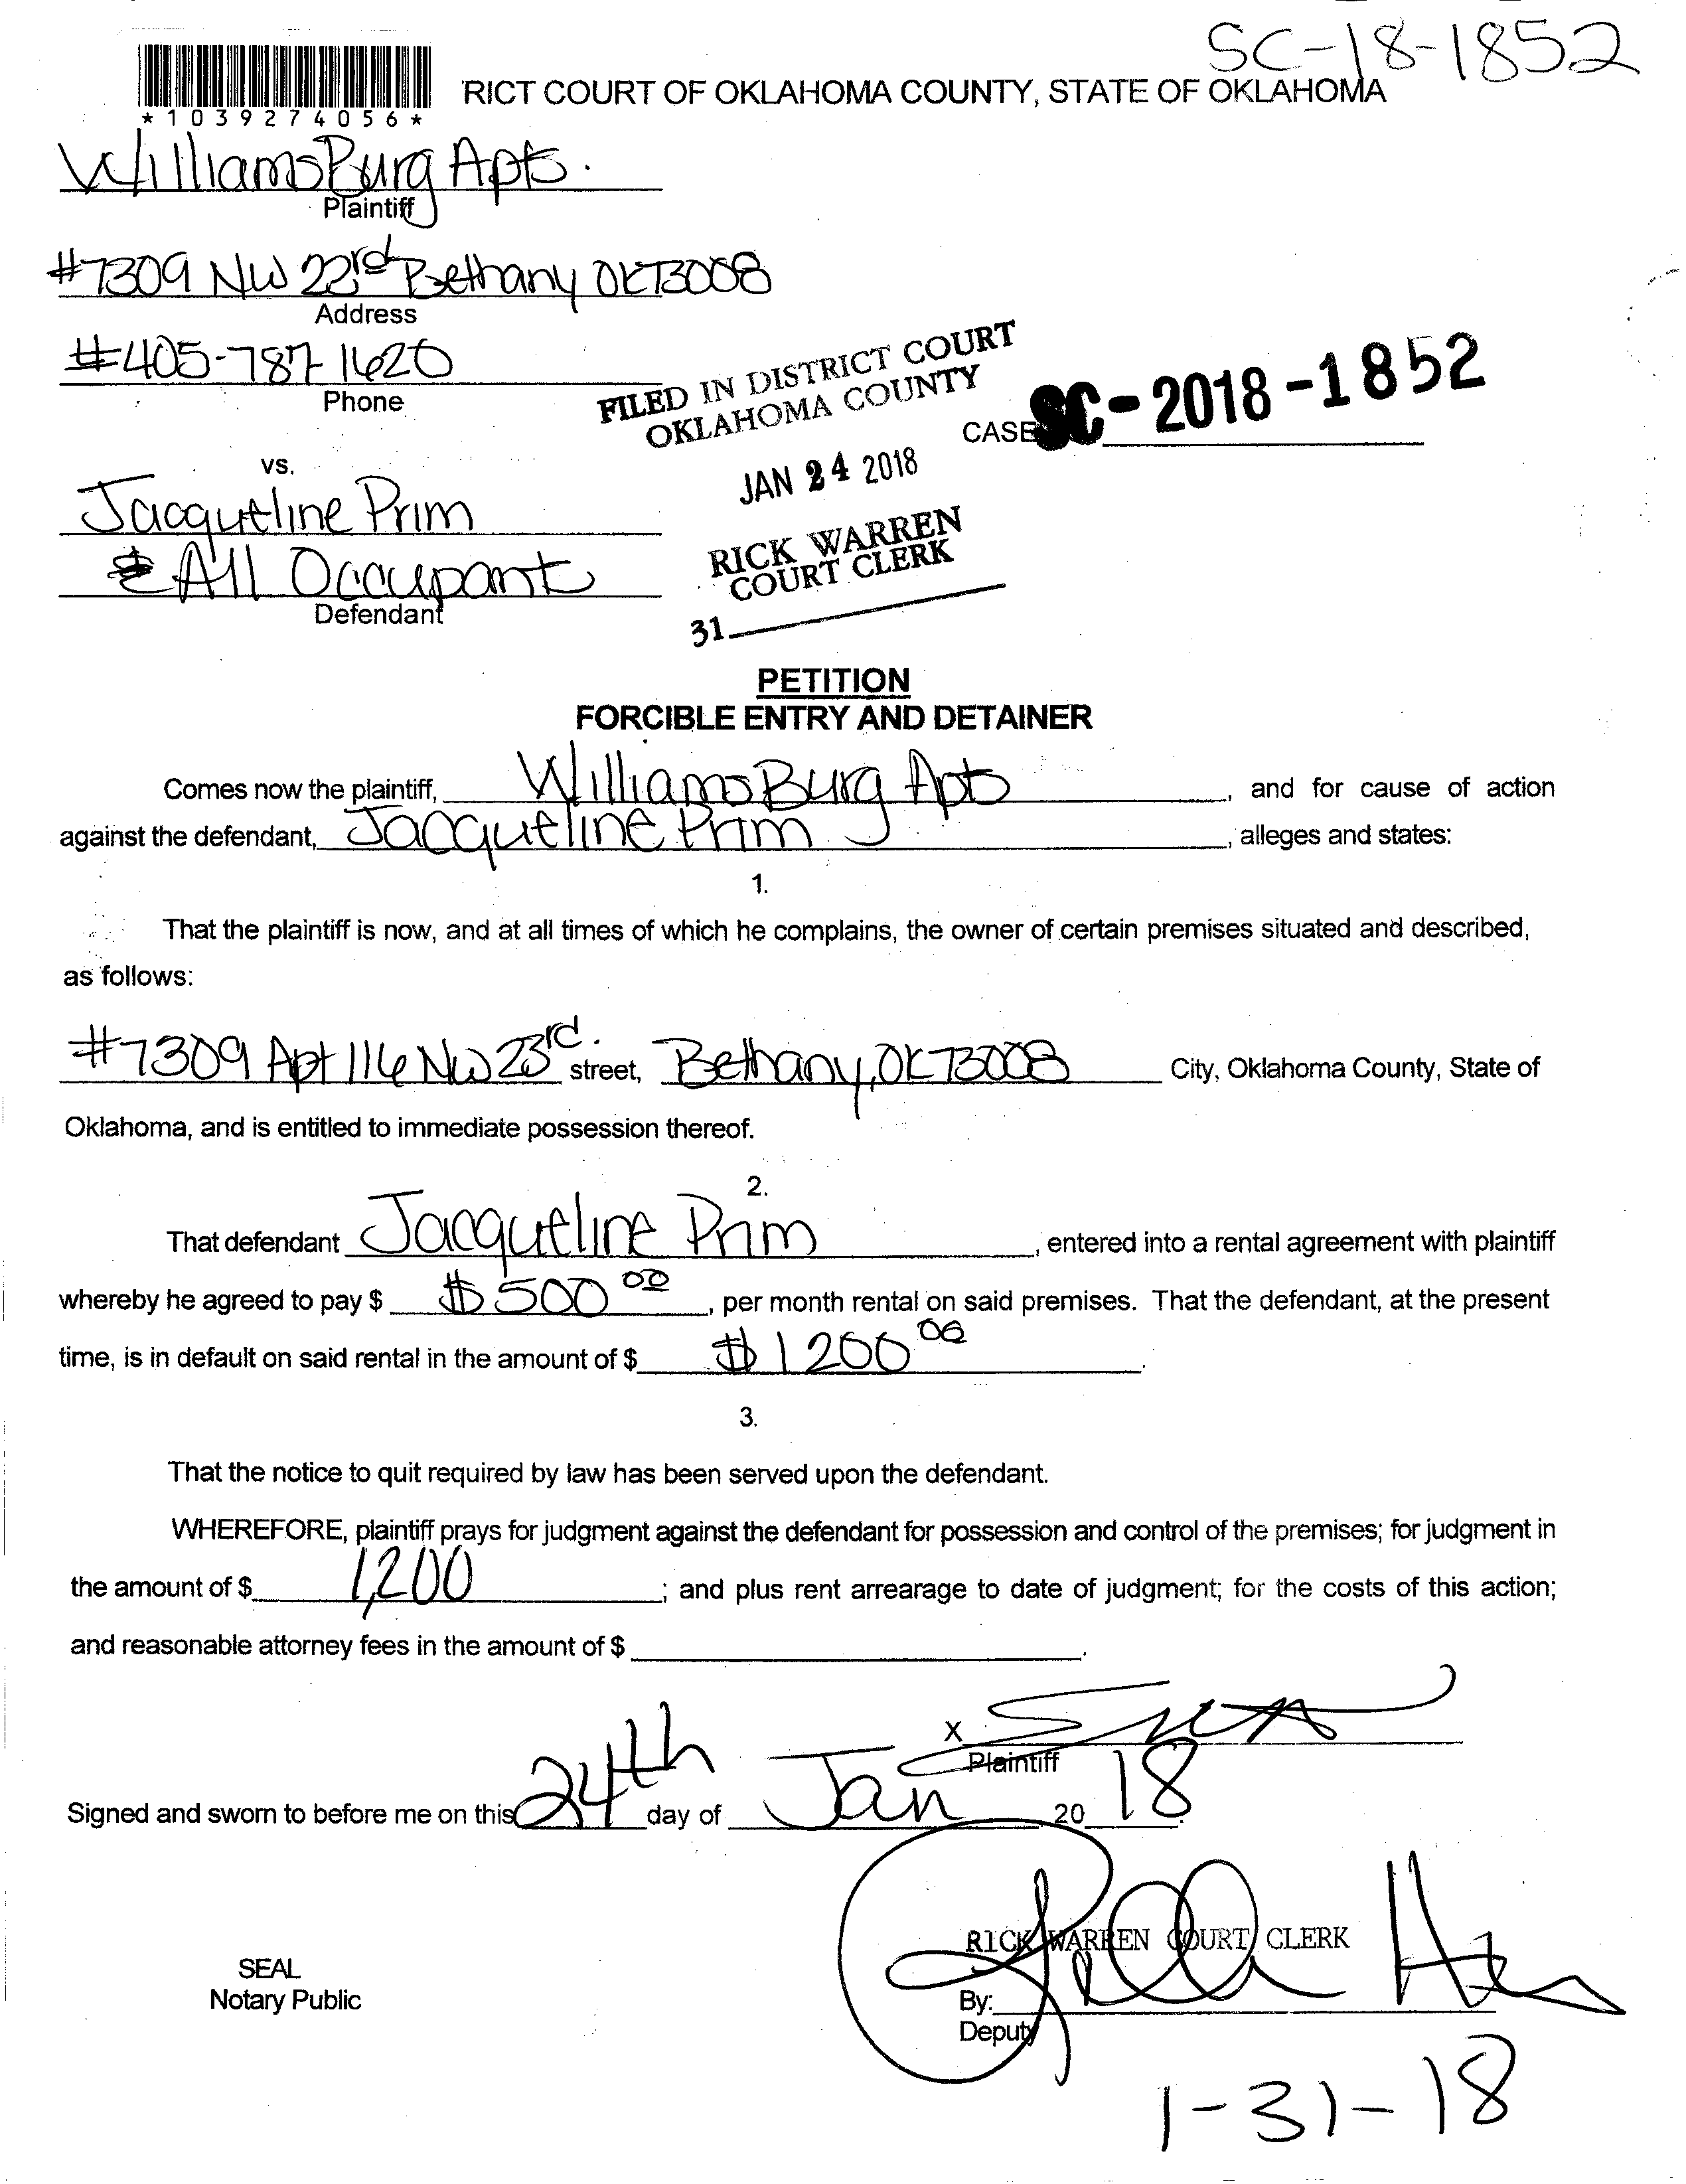 SC-18-1852
*1039274056*
RICT COURT OF OKLAHOMA COUNTY, STATE OF OKLAHOMA
WilliamsBurg Apts.
Plaintiff
#7309 NW 23rd Bethany OK 73008
Address
#405-787-1620
Phone
FILED IN DISTRICT COURT
OKLAHOMA COUNTY
CASE SC-2018-1852
JAN 24 2018
RICK WARREN
COURT CLERK
31
vs.
Jacqueline Prim
& All Occupant
Defendant
PETITION
FORCIBLE ENTRY AND DETAINER
Comes now the plaintiff, WilliamsBurg Apts, and for cause of action
against the defendant, Jacqueline Prim, alleges and states:
1.
That the plaintiff is now, and at all times of which he complains, the owner of certain premises situated and described,
as follows:
#7309 Apt 116 NW 23rd. street, Bethany, OK 73008 City, Oklahoma County, State of
Oklahoma, and is entitled to immediate possession thereof.
2.
That defendant Jacqueline Prim, entered into a rental agreement with plaintiff
whereby he agreed to pay $ $500 00, per month rental on said premises. That the defendant, at the present
time, is in default on said rental in the amount of $ $1200 00.
3.
That the notice to quit required by law has been served upon the defendant.
WHEREFORE, plaintiff prays for judgment against the defendant for possession and control of the premises; for judgment in
the amount of $ 1,200; and plus rent arrearage to date of judgment; for the costs of this action;
and reasonable attorney fees in the amount of $.
X
Plaintiff
Signed and sworn to before me on this 24th day of Jan 20 18.
RICK WARREN COURT CLERK
SEAL
Notary Public
By:
Deputy
1-31-18